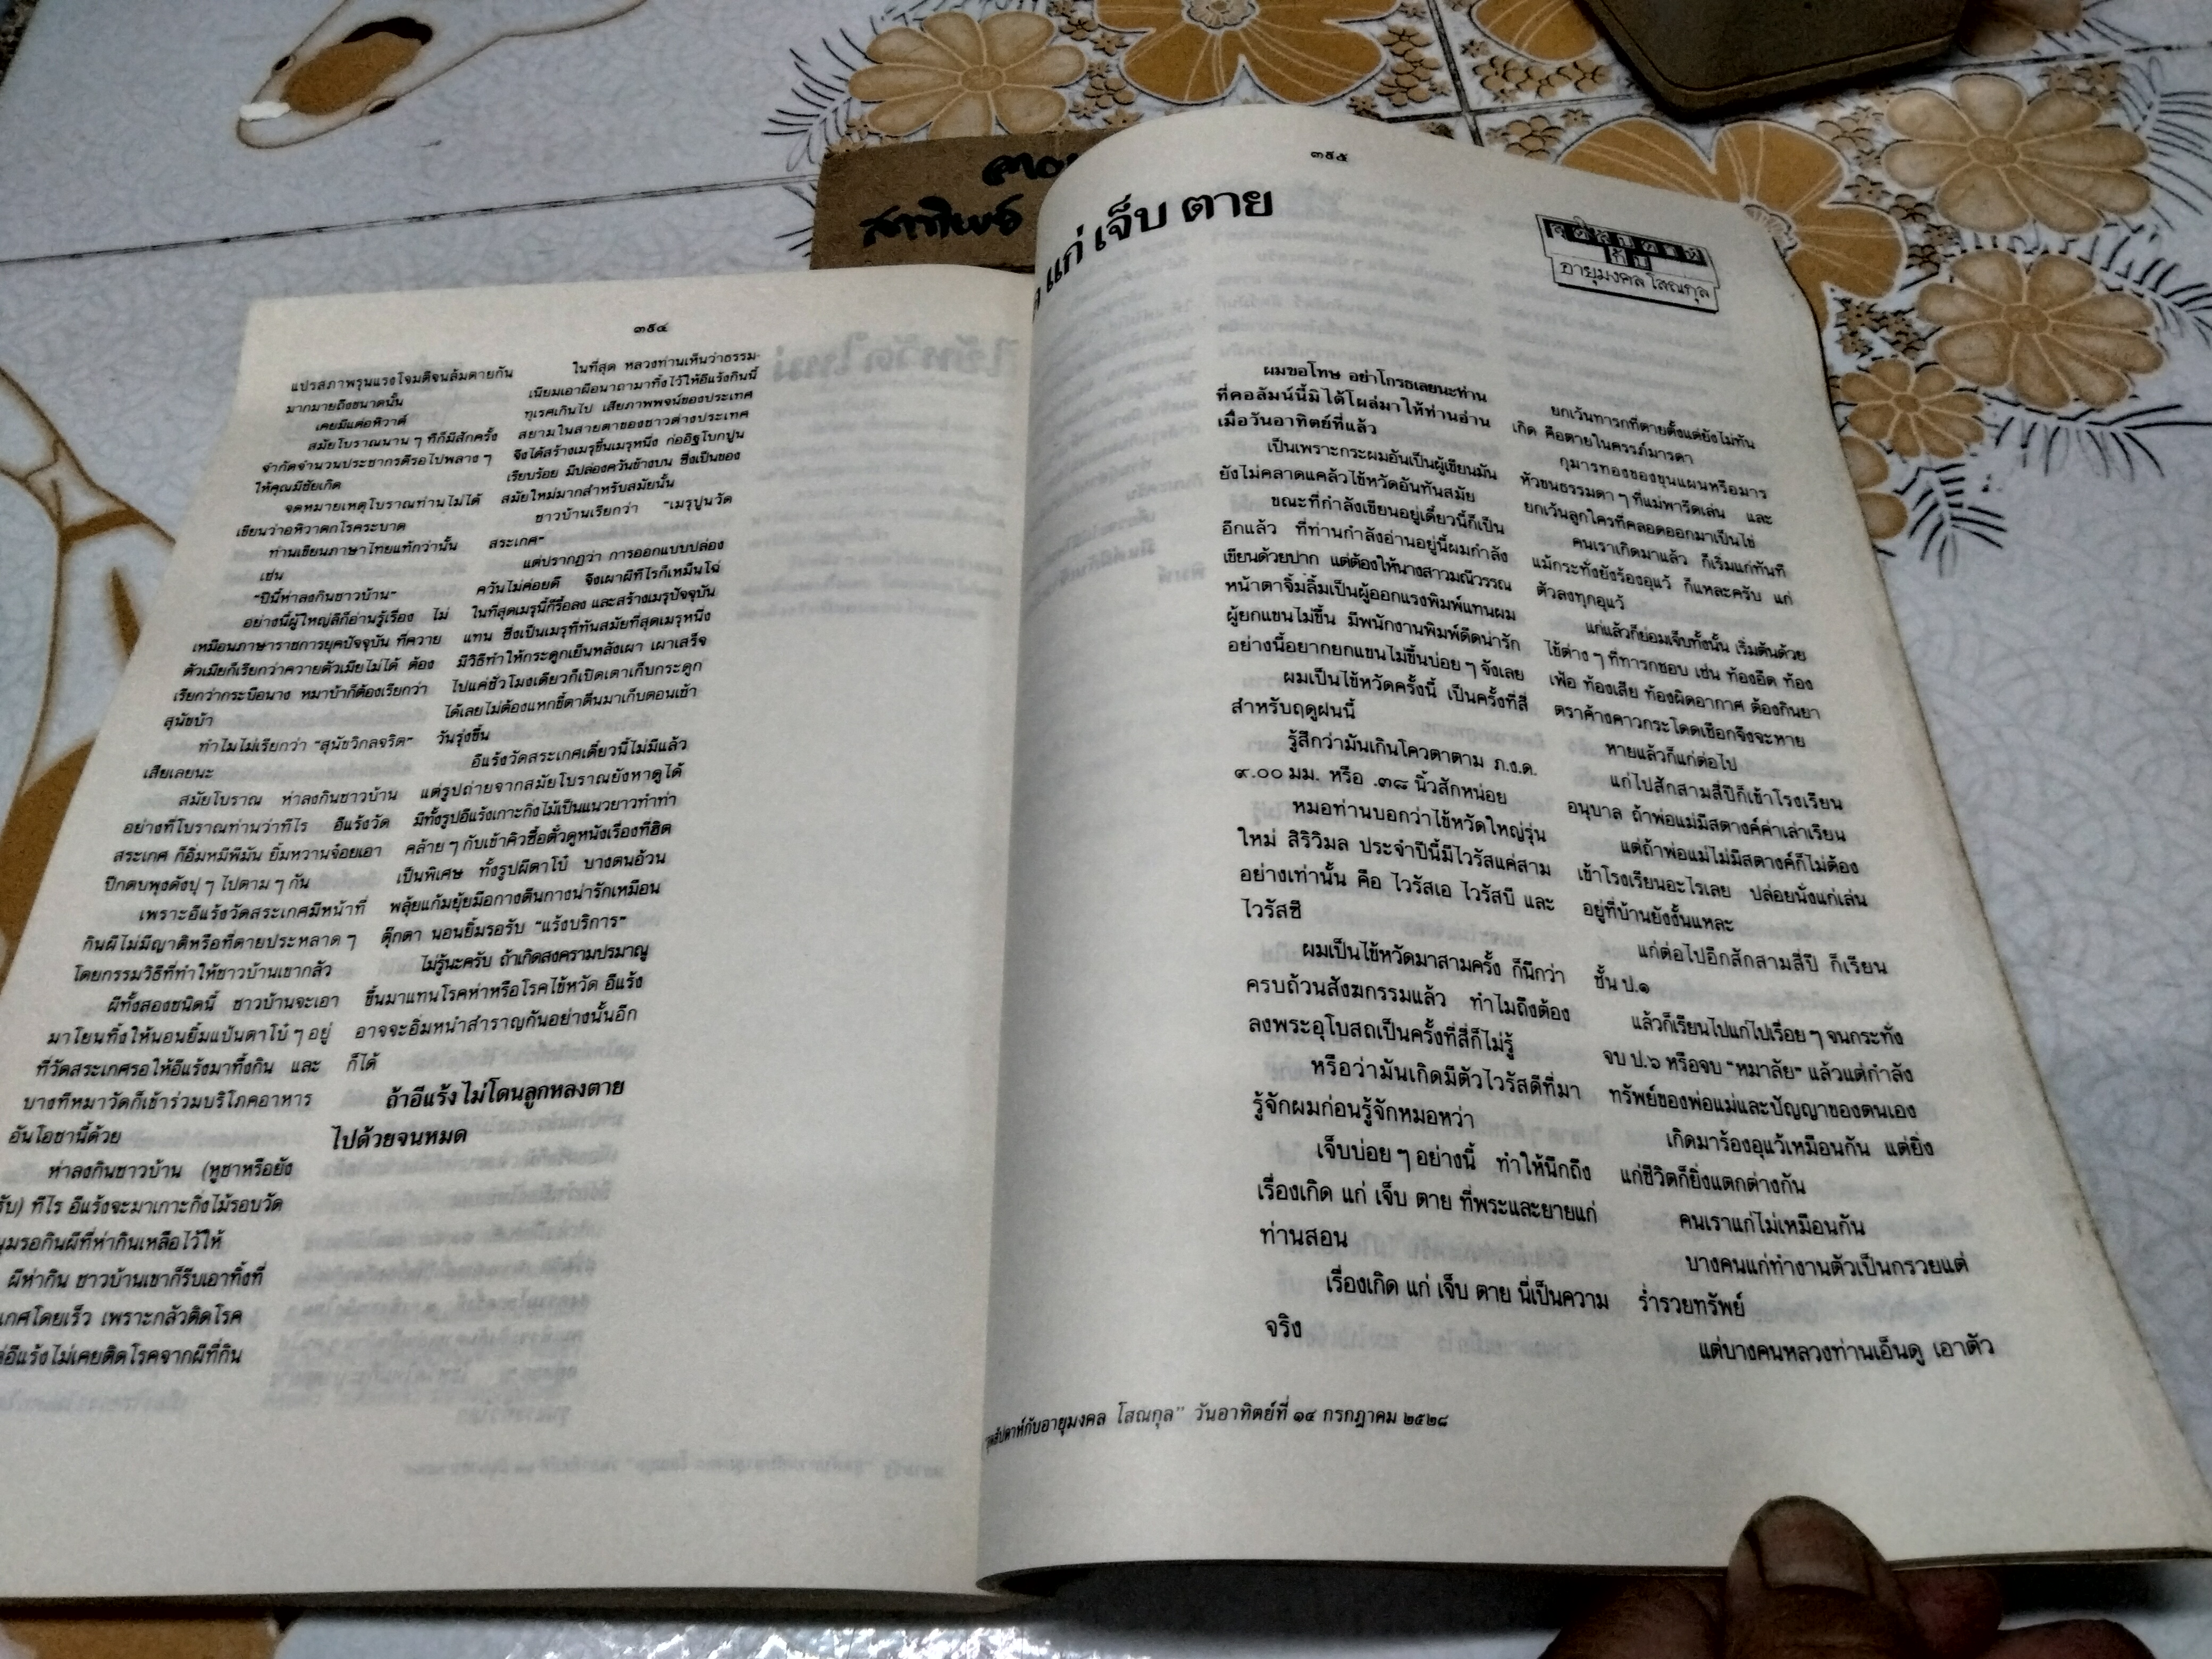 ๓๕๔
แปรสภาพรุนแรงโจมตีจนล้มตายกัน
มากมายถึงขนาดนั้น
เคยมีแต่อหิวาต์
สมัยโบราณนาน ๆ ทีก็มีสักครั้ง
จำกัดจำนวนประชากรดีรอไปพลาง ๆ
ให้คุณมีชัยเกิด
จดหมายเหตุโบราณท่านไม่ได้
เขียนว่าอหิวาตกโรคระบาด
ท่านเขียนภาษาไทยแท้กว่านั้น
เช่น
"ปีนี้ห่าลงกินชาวบ้าน"
อย่างนี้ผู้ใหญ่ลีก็อ่านรู้เรื่อง ไม่
เหมือนภาษาราชการยุคปัจจุบัน ที่ควาย
ตัวเมียก็เรียกว่าควายตัวเมียไม่ได้ ต้อง
เรียกว่ากระบือนาง หมาบ้าก็ต้องเรียกว่า
สุนัขบ้า
ทำไมไม่เรียกว่า "สุนัขวิกลจริต"
เสียเลยนะ
สมัยโบราณ ห่าลงกินชาวบ้าน
อย่างที่โบราณท่านว่าทีไร อีแร้งวัด
สระเกศ ก็อิ่มหมีพีมัน ยิ้มหวานจ๋อยเอา
ปีกตบพุงดังปุ ๆ ไปตาม ๆ กัน
เพราะอีแร้งวัดสระเกศมีหน้าที่
กินผีไม่มีญาติหรือที่ตายประหลาด ๆ
โดยกรรมวิธีที่ทำให้ชาวบ้านเขากลัว
ผีทั้งสองชนิดนี้ ชาวบ้านจะเอา
มาโยนทิ้งให้นอนยิ้มแป้นตาโบ๋ ๆ อยู่
ที่วัดสระเกศรอให้อีแร้งมาทึ้งกิน และ
บางทีหมาวัดก็เข้าร่วมบริโภคอาหาร
อันโอชานี้ด้วย
ห่าลงกินชาวบ้าน (หูชาหรือยัง
รับ) ทีไร อีแร้งจะมาเกาะกิ่งไม้รอบวัด
ชุมรอกินผีที่ห่ากินเหลือไว้ให้
ผีห่ากิน ชาวบ้านเขาก็รีบเอาทิ้งที่
เกศโดยเร็ว เพราะกลัวติดโรค
อีแร้งไม่เคยติดโรคจากผีที่กิน
ในที่สุด หลวงท่านเห็นว่าธรรม-
เนียมเอาผีอนาถามาทิ้งไว้ให้อีแร้งกินนี้
ทุเรศเกินไป เสียภาพพจน์ของประเทศ
สยามในสายตาของชาวต่างประเทศ
จึงได้สร้างเมรุขึ้นเมรุหนึ่ง ก่ออิฐโบกปูน
เรียบร้อย มีปล่องควันข้างบน ซึ่งเป็นของ
สมัยใหม่มากสำหรับสมัยนั้น
ชาวบ้านเรียกว่า "เมรุปูนวัด
สระเกศ"
แต่ปรากฏว่า การออกแบบปล่อง
ควันไม่ค่อยดี จึงเผาผีทีไรก็เหม็นโฉ่
ในที่สุดเมรุนี้ก็รื้อลง และสร้างเมรุปัจจุบัน
แทน ซึ่งเป็นเมรุที่ทันสมัยที่สุดเมรุหนึ่ง
มีวิธีทำให้กระดูกเย็นหลังเผา เผาเสร็จ
ไปแค่ชั่วโมงเดียวก็เปิดเตาเก็บกระดูก
ได้เลยไม่ต้องแหกขี้ตาตื่นมาเก็บตอนเช้า
วันรุ่งขึ้น
อีแร้งวัดสระเกศเดี๋ยวนี้ไม่มีแล้ว
แต่รูปถ่ายจากสมัยโบราณยังหาดูได้
มีทั้งรูปอีแร้งเกาะกิ่งไม้เป็นแนวยาวทำท่า
คล้าย ๆ กับเข้าคิวซื้อตั๋วดูหนังเรื่องที่ฮิต
เป็นพิเศษ ทั้งรูปผีตาโบ๋ บางตนอ้วน
พลุ้ยแก้มยุ้ยมือกางตีนกางน่ารักเหมือน
ตุ๊กตา นอนยิ้มรอรับ "แร้งบริการ"
ไม่รู้นะครับ ถ้าเกิดสงครามปรมาณู
ขึ้นมาแทนโรคห่าหรือโรคไข้หวัด อีแร้ง
อาจจะอิ่มหนำสำราญกันอย่างนั้นอีก
ก็ได้
ถ้าอีแร้งไม่โดนลูกหลงตาย
ไปด้วยจนหมด
๓๕๕
แก่ เจ็บ ตาย
กับ
อายุมงคล โสณกุล
ผมขอโทษ อย่าโกรธเลยนะท่าน
ที่คอลัมน์นี้มิได้โผล่มาให้ท่านอ่าน
เมื่อวันอาทิตย์ที่แล้ว
เป็นเพราะกระผมอันเป็นผู้เขียนมัน
ยังไม่คลาดแคล้วไข้หวัดอันทันสมัย
ขณะที่กำลังเขียนอยู่เดี๋ยวนี้ก็เป็น
อีกแล้ว ที่ท่านกำลังอ่านอยู่นี้ผมกำลัง
เขียนด้วยปาก แต่ต้องให้นางสาวมณีวรรณ
หน้าตาจิ้มลิ้มเป็นผู้ออกแรงพิมพ์แทนผม
ผู้ยกแขนไม่ขึ้น มีพนักงานพิมพ์ดีดน่ารัก
อย่างนี้อยากยกแขนไม่ขึ้นบ่อย ๆ จังเลย
ผมเป็นไข้หวัดครั้งนี้ เป็นครั้งที่สี่
สำหรับฤดูฝนนี้
รู้สึกว่ามันเกินโควตาตาม ภ.ง.ด.
๙.๐๐ มม. หรือ .๓๘ นิ้วสักหน่อย
หมอท่านบอกว่าไข้หวัดใหญ่รุ่น
ใหม่ สิริวิมล ประจำปีนี้มีไวรัสแค่สาม
อย่างเท่านั้น คือ ไวรัสเอ ไวรัสบี และ
ไวรัสซี
ผมเป็นไข้หวัดมาสามครั้ง ก็นึกว่า
ครบถ้วนสังฆกรรมแล้ว ทำไมถึงต้อง
ลงพระอุโบสถเป็นครั้งที่สี่ก็ไม่รู้
หรือว่ามันเกิดมีตัวไวรัสดีที่มา
รู้จักผมก่อนรู้จักหมอหว่า
เจ็บบ่อย ๆ อย่างนี้ ทำให้นึกถึง
เรื่องเกิด แก่ เจ็บ ตาย ที่พระและยายแก่
ท่านสอน
เรื่องเกิด แก่ เจ็บ ตาย นี่เป็นความ
จริง
ยกเว้นทารกที่ตายตั้งแต่ยังไม่ทัน
เกิด คือตายในครรภ์มารดา
กุมารทองของขุนแผนหรือมาร
หัวขนธรรมดา ๆ ที่แม่พารีดเล่น และ
ยกเว้นลูกใครที่คลอดออกมาเป็นไข่
คนเราเกิดมาแล้ว ก็เริ่มแก่ทันที
แม้กระทั่งยังร้องอุแว้ ก็แหละครับ แก่
ตัวลงทุกอุแว้
แก่แล้วก็ย่อมเจ็บทั้งนั้น เริ่มต้นด้วย
ไข้ต่าง ๆ ที่ทารกชอบ เช่น ท้องอืด ท้อง
เฟ้อ ท้องเสีย ท้องผิดอากาศ ต้องกินยา
ตราค้างคาวกระโดดเชือกจึงจะหาย
หายแล้วก็แก่ต่อไป
แก่ไปสักสามสี่ปีก็เข้าโรงเรียน
อนุบาล ถ้าพ่อแม่มีสตางค์ค่าเล่าเรียน
แต่ถ้าพ่อแม่ไม่มีสตางค์ก็ไม่ต้อง
เข้าโรงเรียนอะไรเลย ปล่อยนั่งแก่เล่น
อยู่ที่บ้านยังงั้นแหละ
แก่ต่อไปอีกสักสามสี่ปี ก็เรียน
ชั้น ป.๑
แล้วก็เรียนไปแก่ไปเรื่อย ๆ จนกระทั่ง
จบ ป.๖ หรือจบ "หมาลัย" แล้วแต่กำลัง
ทรัพย์ของพ่อแม่และปัญญาของตนเอง
เกิดมาร้องอุแว้เหมือนกัน แต่ยิ่ง
แก่ชีวิตก็ยิ่งแตกต่างกัน
คนเราแก่ไม่เหมือนกัน
บางคนแก่ทำงานตัวเป็นกรวยแต่
ร่ำรวยทรัพย์
แต่บางคนหลวงท่านเอ็นดู เอาตัว
สัปดาห์กับอายุมงคล โสณกุล" วันอาทิตย์ที่ ๑๔ กรกฎาคม ๒๕๒๘